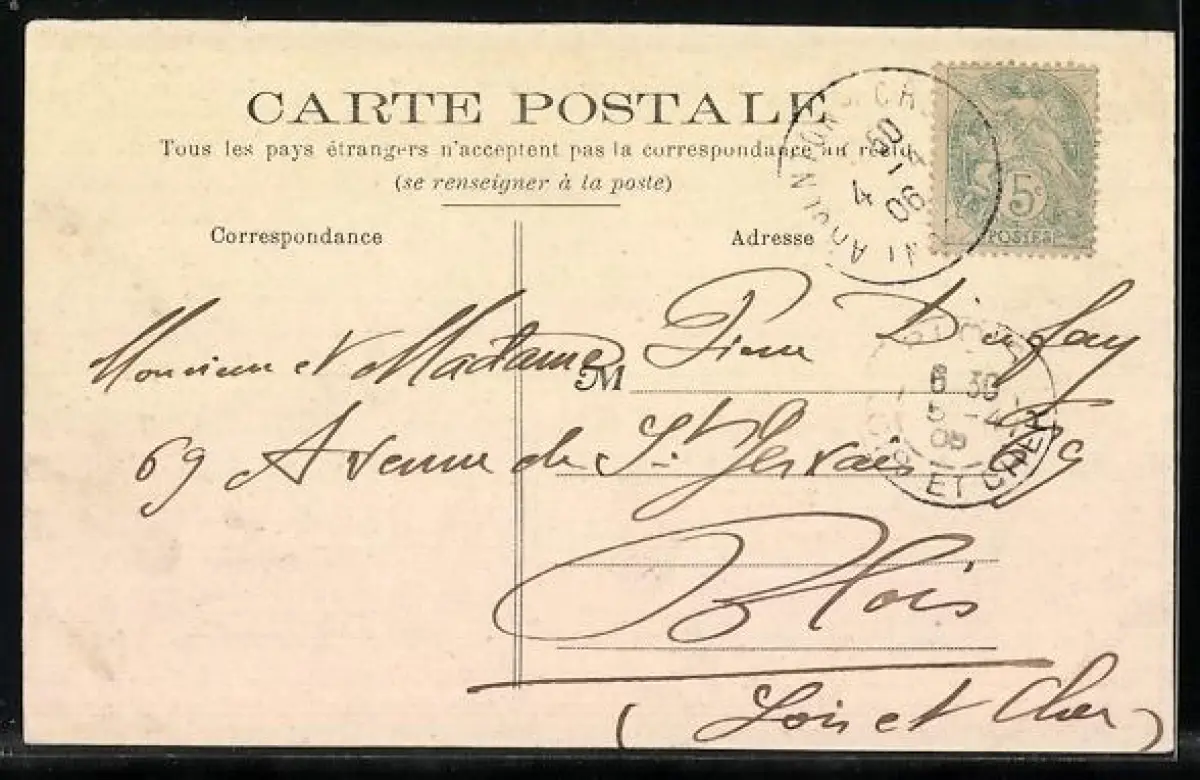 CARTE POSTALE
Tous les pays étrangers n'acceptent pas la correspondance au recto
(se renseigner à la poste)
Correspondance
Adresse
5c
POSTES
4
06
Monsieur et Madame Pierre
M
69 Avenue de St Gervais 69
Blois
(Loir et Cher)
6 30
5 -4
ET CHER